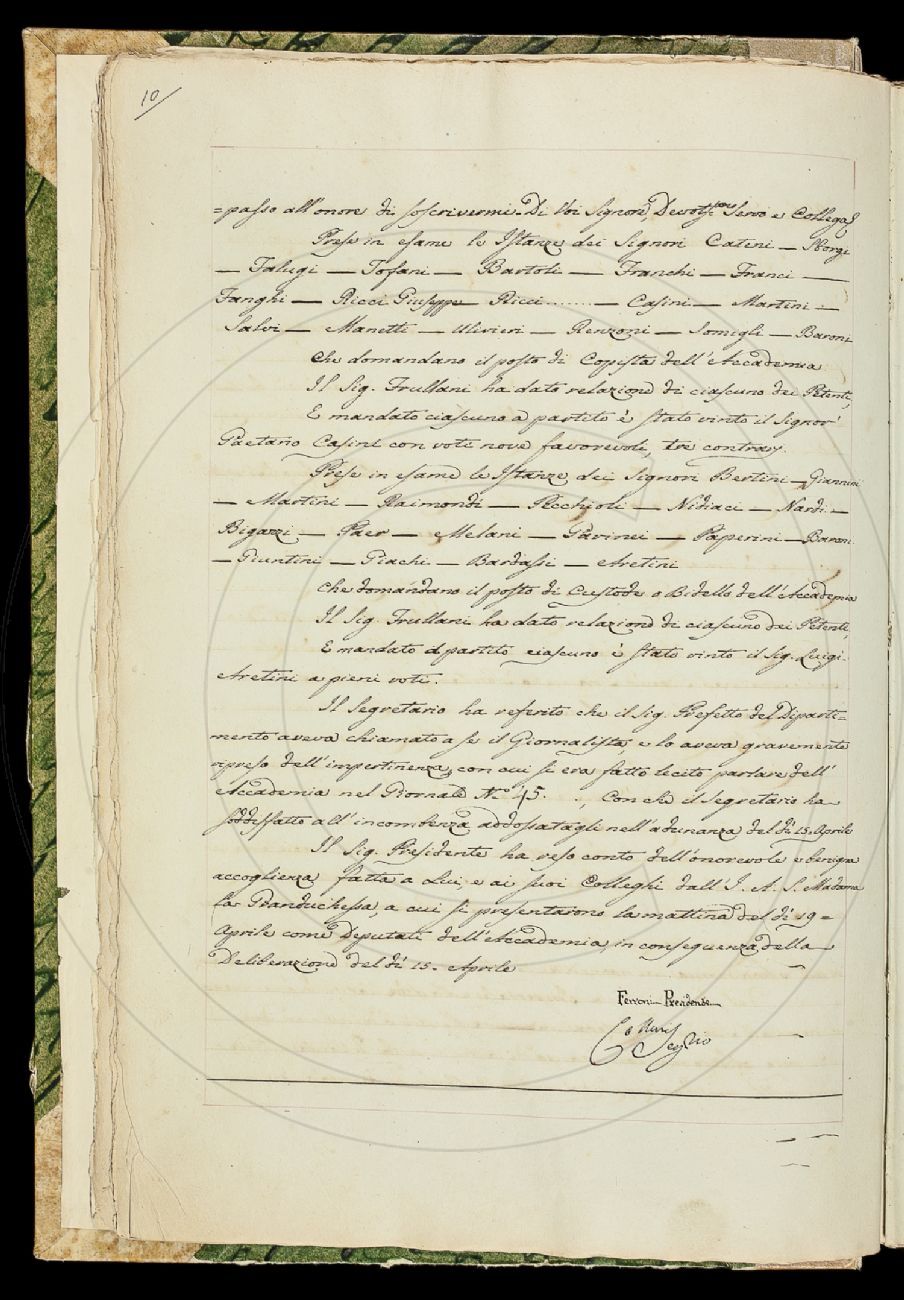 10
=passo all'onore di soscrivermi Di Voi Signori Devotis.mo Servo e Collega
Prese in esame le Istanze dei Signori Catini — Sborgi
— Falugi — Tofani — Bartoli — Franchi — Franci —
Fanghi — Ricci Giuseppe — Ricci ........ — Casini — Martini —
Salvi — Manetti — Ulivieri — Renzoni — Somigli — Baroni
che domandano il posto di Copista dell'Accademia
Il Sig. Frullani ha dato relazione di ciascuno dei Petenti,
E mandato ciascuno a partito è stato vinto il Signor
Gaetano Casini con voti nove favorevoli, tre contrarj.
Prese in esame le Istanze dei Signori Bertini — Giannini
— Martini — Raimondi — Picchioli — Nidiaci — Nardi —
Bigazzi — Paer — Melani — Gavinei — Paperini — Baroni
— Giuntini — Giachi — Bardassi — Aretini
che domandano il posto di Custode o Bidello dell'Accademia
Il Sig. Frullani ha dato relazione di ciascuno dei Petenti,
E mandato a partito ciascuno è stato vinto il Sig. Luigi
Aretini a pieni voti.
Il Segretario ha referito che il Sig. Prefetto del Diparti=
mento aveva chiamato a se il Giornalista, e lo aveva gravemente
ripreso dell'impertinenza, con cui si era fatto lecito parlare dell'
Accademia nel Giornale N.o 45. ., Con che il Segretario ha
soddisfatto all'incombenza addossatagli nell'adunanza del dì 15. Aprile
Il Sig. Presidente ha reso conto dell'onorevole e benigna
accoglienza fatta a Lui, e ai suoi Colleghi dall'I. A. S. Madama
la Granduchessa, a cui si presentarono la mattina del dì 19=
Aprile come Deputati dell'Accademia, in conseguenza della
Deliberazione del dì 15. Aprile
Ferroni Presidente
Seg.rio